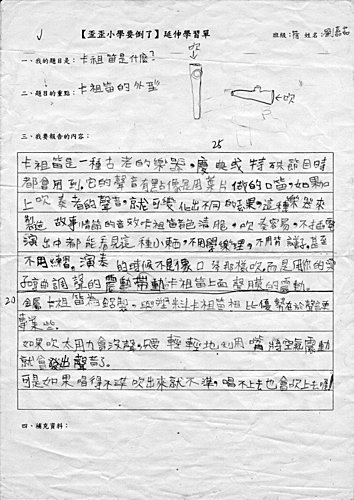 【歪歪小學要倒了】延伸學習單
班級： 姓名：
一、我的題目是：卡祖笛是什麼？
二、題目的重點：卡祖笛的外型
吹
吹
三、我要報告的內容：
25
卡祖笛是一種古老的樂器。慶典或特殊節日時
都會用到。它的聲音有點像是用葉片做的口笛。如果加
上吹奏者的聲音，就可變化出不同的效果。這種樂器來
製造 故事情節的音效卡祖笛音色清脆。吹奏容易。不插電
演出中都能看見這種小東西。不用 不用背譜子，甚至
不用練習。演奏的時候不是像口琴那樣吹而是用你的嗓
子唱曲調聲的震動帶動卡祖笛上面聲膜的震動。
20
金屬卡祖笛為 與塑料卡祖笛相比優勢在於聲音
專業些。
如果吹太用力會沒聲。只要輕輕地利用嘴將空氣震動
就會發出聲音了。
可是如果唱得不準吹出來就不準。唱不上去也會吹上去喔！
四、補充資料：